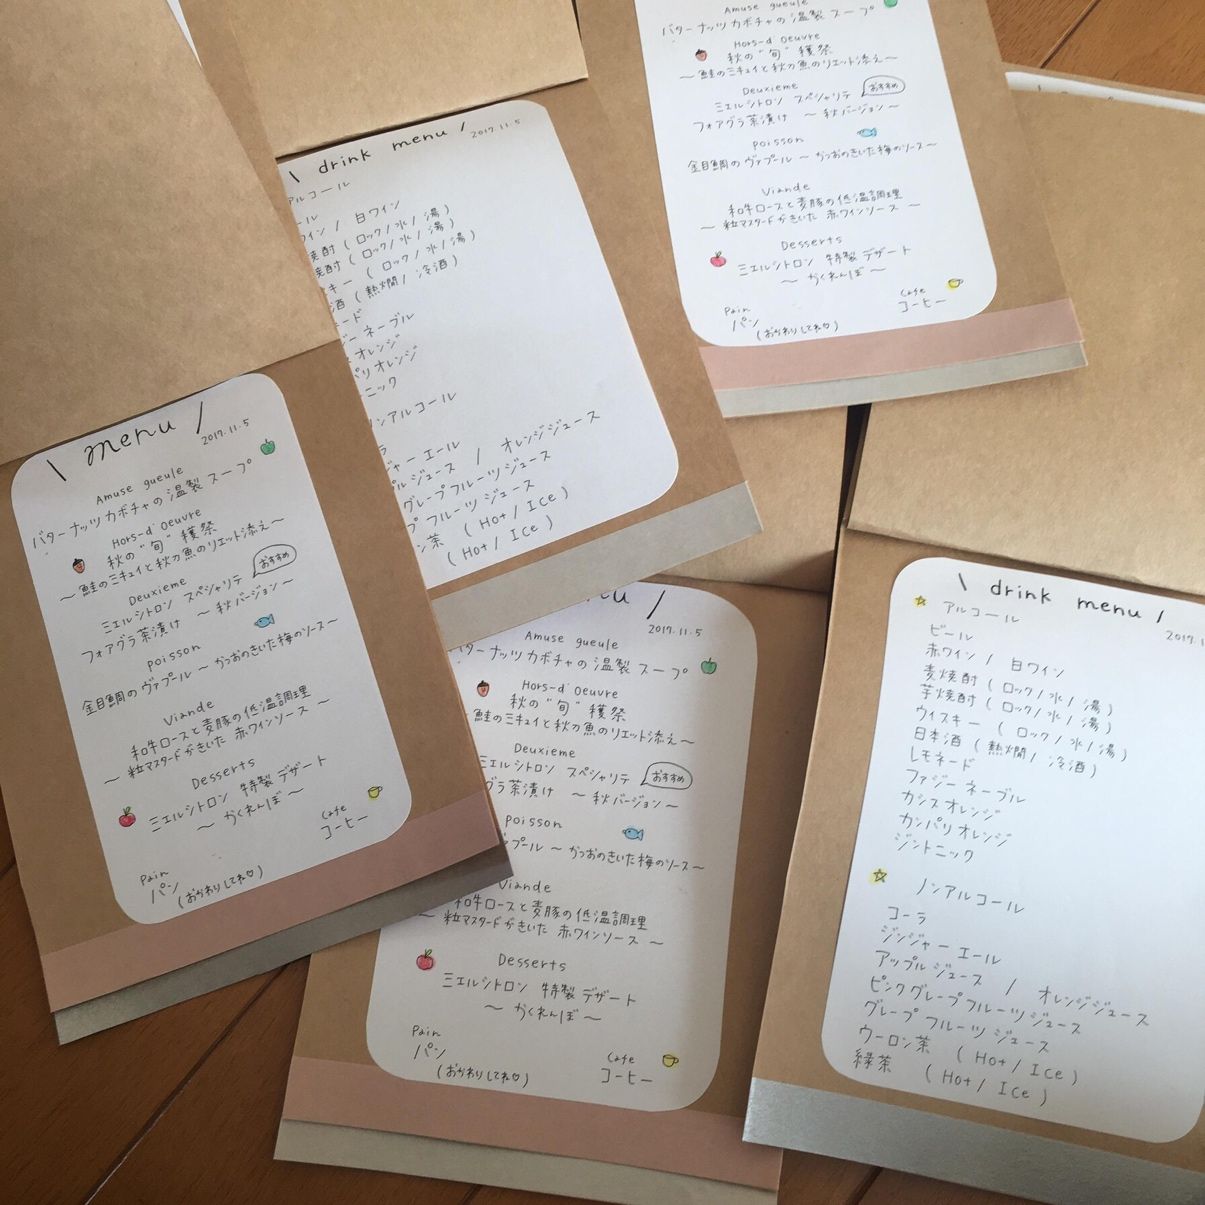 Amuse gueule
バターナッツカボチャの温製スープ
Hors-d'Oeuvre
秋の"旬"穫祭
～鮭のミキュイと秋刀魚のリエット添え～
Deuxieme
ミエルシトロン スペシャリテ
おすすめ
フォアグラ茶漬け ～秋バージョン～
poisson
金目鯛のヴァプール～かつおのきいた梅のソース～
Viande
和牛ロースと麦豚の低温調理
～粒マスタードがきいた 赤ワインソース～
Desserts
ミエルシトロン 特製デザート
～かくれんぼ～
Cafe
コーヒー
Pain
パン
(おかわりしてね♡)
\ drink menu /
2017.11.5
アルコール
ール
イン / 白ワイン
焼酎 (ロック/水/湯)
焼酎 (ロック/水/湯)
スキー (ロック/水/湯)
酒 (熱燗/冷酒)
ード
ジーネーブル
オレンジ
パリオレンジ
ニック
ノンアルコール
ラ
ジャーエール
プルジュース / オレンジジュース
グレープフルーツジュース
プフルーツジュース
ン茶 (Hot/Ice)
(Hot/Ice)
\ menu /
2017.11.5
Amuse gueule
バターナッツカボチャの温製スープ
Hors-d'Oeuvre
秋の"旬"穫祭
～鮭のミキュイと秋刀魚のリエット添え～
Deuxieme
ミエルシトロン スペシャリテ
おすすめ
フォアグラ茶漬け ～秋バージョン～
poisson
金目鯛のヴァプール～かつおのきいた梅のソース～
Viande
和牛ロースと麦豚の低温調理
～粒マスタードがきいた 赤ワインソース～
Desserts
ミエルシトロン 特製デザート
～かくれんぼ～
Cafe
コーヒー
Pain
パン
(おかわりしてね♡)
nu /
2017.11.5
Amuse gueule
ターナッツカボチャの温製スープ
Hors-d'Oeuvre
秋の"旬"穫祭
鮭のミキュイと秋刀魚のリエット添え～
Deuxieme
ミエルシトロン スペシャリテ
おすすめ
グラ茶漬け ～秋バージョン～
poisson
プール～かつおのきいた梅のソース～
Viande
和牛ロースと麦豚の低温調理
～粒マスタードがきいた 赤ワインソース～
Desserts
ミエルシトロン 特製デザート
～かくれんぼ～
Cafe
コーヒー
Pain
パン
(おかわりしてね♡)
\ drink menu /
2017.1
アルコール
ビール
赤ワイン / 白ワイン
麦焼酎 (ロック/水/湯)
芋焼酎 (ロック/水/湯)
ウイスキー (ロック/水/湯)
日本酒 (熱燗/冷酒)
レモネード
ファジーネーブル
カシスオレンジ
カンパリオレンジ
ジントニック
ノンアルコール
コーラ
ジンジャーエール
アップルジュース / オレンジジュース
ピンクグレープフルーツジュース
グレープフルーツジュース
ウーロン茶 (Hot/Ice)
緑茶 (Hot/Ice)